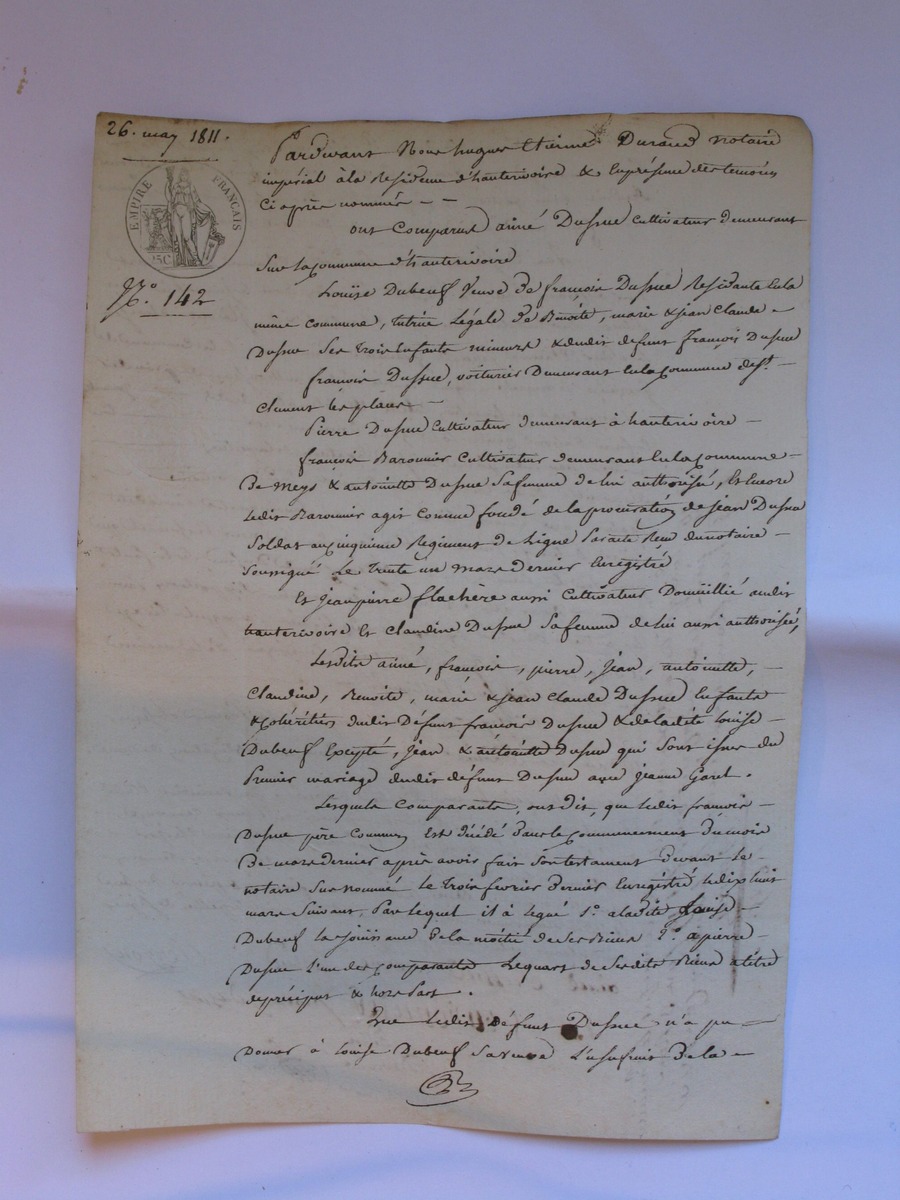 26. may 1811.
EMPIRE FRANÇAIS
25C
N.º 142
Pardevant Nous hugues Etienne Durand Notaire
imperial à la Residence d'hauterivoire & En présence des temoins
Ci après nommés - -
ont Comparus aimé Dussuc Cultivateur demeurant
Sur la Commune d'hauterivoire
Louise Dubeuf Veuve de françois Dussuc Residante En la
même Commune, tutrice Légale de Benoite, marie & jean Claude -
Dussuc Ses Trois Enfants mineurs & dudit défunt françois Dussuc
françois Dussuc, voiturier Demeurant En la Commune de St. -
Clement les places -
Pierre Dussuc Cultivateur demeurant à hauterivoire -
françois Baronnier Cultivateur demeurant En la Commune -
De Meys & antoinette Dussuc Sa femme de lui authorisée, Et Encore
Ledit Baronnier agit Comme fondé de la procuration de Jean Dussuc
Soldat au Cinquieme Regiment de Ligne par acte Reçu du notaire -
Soussigné Le Trente un Mars dernier Enregistré
Et jean pierre flachère aussi Cultivateur Domicillié audit
hauterivoire Et Claudine Dussuc Sa femme de lui aussi authorisée,
Lesdits aimé, françois, pierre, Jean, antoinette, -
Claudine, Benoite, marie & jean Claude Dussuc Enfants
& Cohéritiers dudit Défunt françois Dussuc & de ladite louise -
Dubeuf Excepté, Jean & antoinette Dussuc qui Sont issus du
Premier mariage dudit défunt Dussuc avec jeanne Garel.
Lesquels Comparants, ont dit, que ledit françois -
Dussuc père Commun Est décédé dans le Commencement du mois
De mars dernier après avoir fait Son testament devant le -
notaire Sus nommé Le Trois février Dernier Enregistré le dix huit
mars Suivant, Par lequel il à légué 1.º a ladite Louise -
Dubeuf la jouissance de la moitié de Ses Biens 2.º à pierre -
Dussuc L'un des Comparants Le quart de Sesdits Biens a titre
de préciput & hors Part.
Que ledit défunt Dussuc n'a pu -
Donner à louise Dubeuf Sa Veuve L'usufruit de la -